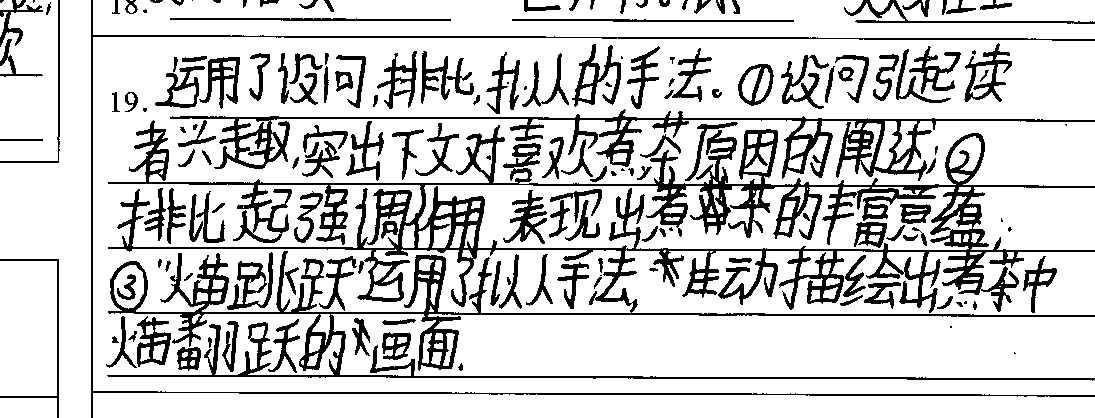 18.
19. 运用了设问,排比,拟人的手法。①设问引起读
者兴趣,突出下文对喜欢煮茶原因的阐述;②
排比起强调作用,表现出煮茶的丰富意蕴;
③"火苗跳跃"运用了拟人手法,生动描绘出煮茶中
火苗翻跃的画面.